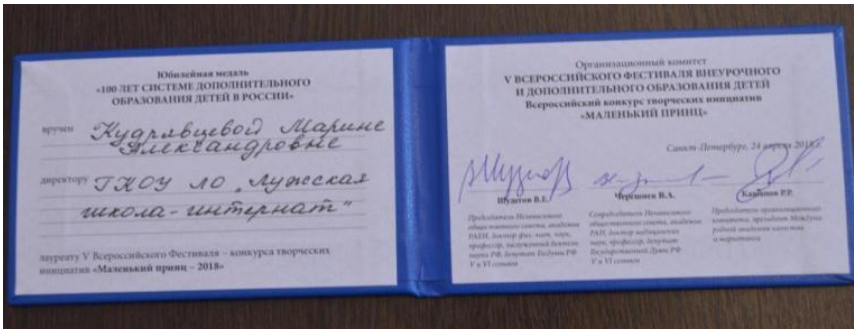 Юбилейная медаль
«100 ЛЕТ СИСТЕМЕ ДОПОЛНИТЕЛЬНОГО
ОБРАЗОВАНИЯ ДЕТЕЙ В РОССИИ»
вручен Кудрявцевой Марине
Александровне
директору ГКОУ ЛО „Лужская
школа-интернат"
лауреату V Всероссийского Фестиваля – конкурса творческих
инициатив «Маленький принц – 2018»
Организационный комитет
V ВСЕРОССИЙСКОГО ФЕСТИВАЛЯ ВНЕУРОЧНОГО
И ДОПОЛНИТЕЛЬНОГО ОБРАЗОВАНИЯ ДЕТЕЙ
Всероссийский конкурс творческих инициатив
«МАЛЕНЬКИЙ ПРИНЦ»
Санкт-Петербург, 24 апреля 2018 г.
Шудегов В.Е.
Председатель Независимого
общественного совета, академик
РАЕН, доктор физ. мат. наук,
профессор, заслуженный деятель
науки РФ, депутат Госдумы РФ
V и VI созывов
Черешнев В.А.
Сопредседатель Независимого
общественного совета, академик
РАН, доктор медицинских
наук, профессор, депутат
Государственной Думы РФ
V и VI созывов
Р.Р.
Председатель организационного
комитета, президент Междуна
родной академии качества
и маркетинга